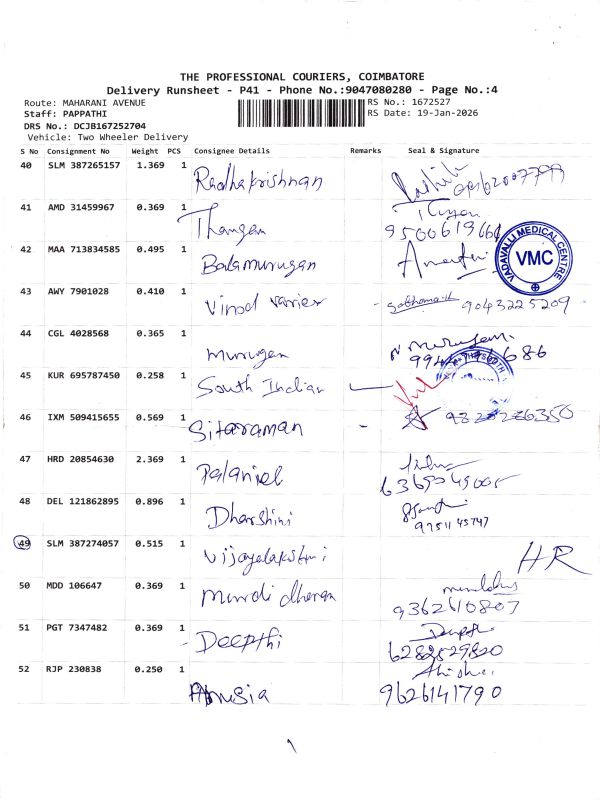 THE PROFESSIONAL COURIERS, COIMBATORE
Delivery Runsheet - P41 - Phone No.:9047080280 - Page No.:4
Route: MAHARANI AVENUE
RS No.: 1672527
Staff: PAPPATHI
RS Date: 19-Jan-2026
DRS No.: DCJB167252704
Vehicle: Two Wheeler Delivery
S No Consignment No Weight PCS Consignee Details Remarks Seal & Signature
40 SLM 387265157 1.369 1 Radhakrishnan
41 AMD 31459967 0.369 1 Thangam
9500619664
42 MAA 713834585 0.495 1 Balamurugan
VADAVALLI MEDICAL CENTRE
VMC
43 AWY 7901028 0.410 1 Vinod Varrier 9043225209
44 CGL 4028568 0.365 1 Murugan Murugan
686
45 KUR 695787450 0.258 1 South Indian
46 IXM 509415655 0.569 1 Sitaraman
47 HRD 20854630 2.369 1 Palanivel
48 DEL 121862895 0.896 1 Dharshini
9751145747
49 SLM 387274057 0.515 1 Vijayalakshmi HR
50 MDD 106647 0.369 1
9362610807
51 PGT 7347482 0.369 1 Deepthi
6282529820
52 RJP 230838 0.250 1 Anusia
9626141790